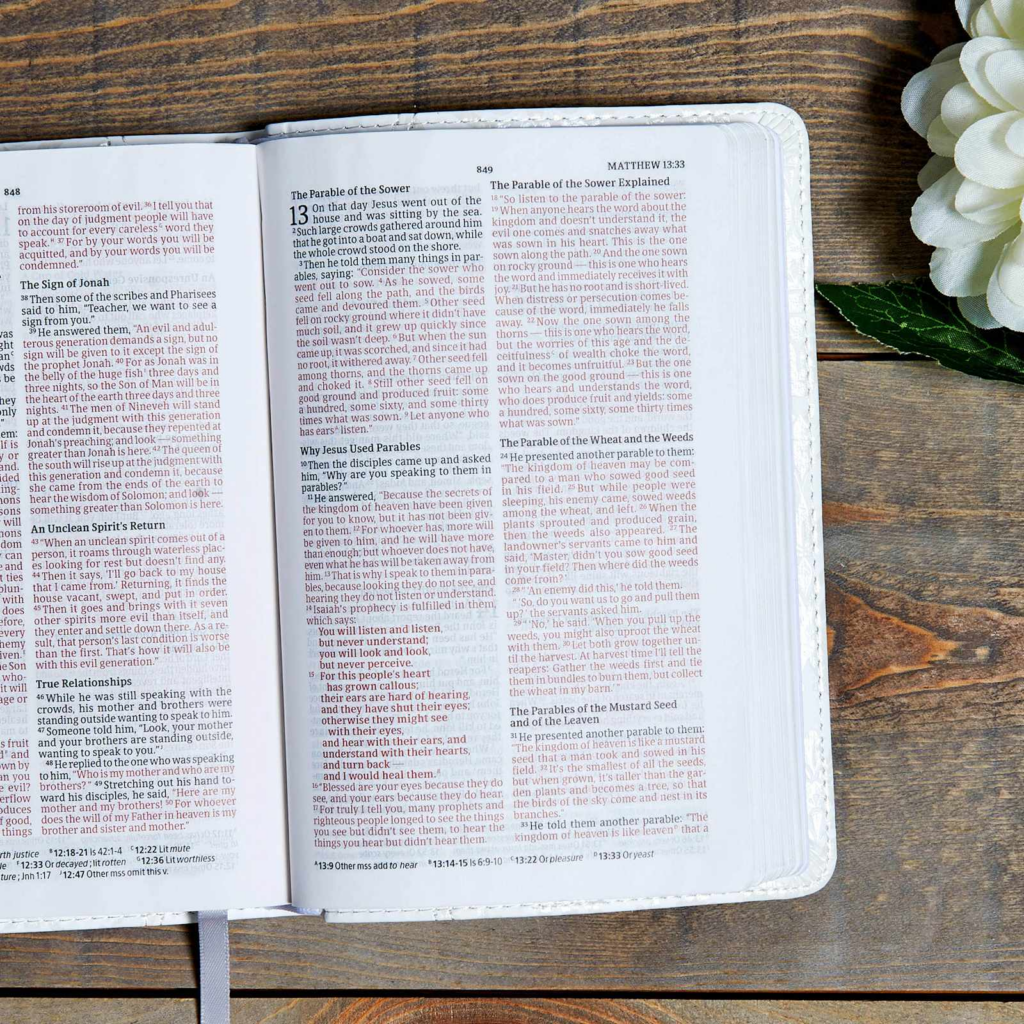 848
was
ght
an
wds
be
hey
only
em:
lf is
and,
ing-
nons
will
dom
can
and
ties
olun-
with
does
efore,
every
hemy
iven.
he Son
who-
it will
age or
s fruit
and
own by
an you
e evil?
verflow
oduces
of good
things
from his storeroom of evil. 36 I tell you that
on the day of judgment people will have
to account for every careless word they
speak. 37 For by your words you will be
acquitted, and by your words you will be
condemned."
The Sign of Jonah
38 Then some of the scribes and Pharisees
said to him, "Teacher, we want to see a
sign from you."
39 He answered them, "An evil and adul-
terous generation demands a sign, but no
sign will be given to it except the sign of
the prophet Jonah. 40 For as Jonah was in
the belly of the huge fish three days and
three nights, so the Son of Man will be in
the heart of the earth three days and three
nights. 41 The men of Nineveh will stand
up at the judgment with this generation
and condemn it, because they repented at
Jonah's preaching; and look — something
greater than Jonah is here. 42 The queen of
the south will rise up at the judgment with
this generation and condemn it, because
she came from the ends of the earth to
hear the wisdom of Solomon; and look —
something greater than Solomon is here.
An Unclean Spirit's Return
43 "When an unclean spirit comes out of a
person, it roams through waterless plac-
es looking for rest but doesn't find any.
44 Then it says, 'I'll go back to my house
that I came from.' Returning, it finds the
house vacant, swept, and put in order.
45 Then it goes and brings with it seven
other spirits more evil than itself, and
they enter and settle down there. As a re-
sult, that person's last condition is worse
than the first. That's how it will also be
with this evil generation."
True Relationships
46 While he was still speaking with the
crowds, his mother and brothers were
standing outside wanting to speak to him.
47 Someone told him, "Look, your mother
and your brothers are standing outside,
wanting to speak to you."
48 He replied to the one who was speaking
to him, "Who is my mother and who are my
brothers?" 49 Stretching out his hand to-
ward his disciples, he said, "Here are my
mother and my brothers! 50 For whoever
does the will of my Father in heaven is my
brother and sister and mother."
rth justice B 12:18-21 Is 42:1-4 C 12:22 Lit mute
le E 12:33 Or decayed; lit rotten G 12:36 Lit worthless
ture; Jnh 1:17 J 12:47 Other mss omit this v.
849
MATTHEW 13:33
The Parable of the Sower
13 On that day Jesus went out of the
house and was sitting by the sea.
2 Such large crowds gathered around him
that he got into a boat and sat down, while
the whole crowd stood on the shore.
3 Then he told them many things in par-
ables, saying: "Consider the sower who
went out to sow. 4 As he sowed, some
seed fell along the path, and the birds
came and devoured them. 5 Other seed
fell on rocky ground where it didn't have
much soil, and it grew up quickly since
the soil wasn't deep. 6 But when the sun
came up, it was scorched, and since it had
no root, it withered away. 7 Other seed fell
among thorns, and the thorns came up
and choked it. 8 Still other seed fell on
good ground and produced fruit: some
a hundred, some sixty, and some thirty
times what was sown. 9 Let anyone who
has ears A listen."
Why Jesus Used Parables
10 Then the disciples came up and asked
him, "Why are you speaking to them in
parables?"
11 He answered, "Because the secrets of
the kingdom of heaven have been given
for you to know, but it has not been giv-
en to them. 12 For whoever has, more will
be given to him, and he will have more
than enough; but whoever does not have,
even what he has will be taken away from
him. 13 That is why I speak to them in para-
bles, because looking they do not see, and
hearing they do not listen or understand.
14 Isaiah's prophecy is fulfilled in them,
which says:
You will listen and listen,
but never understand;
you will look and look,
but never perceive.
15 For this people's heart
has grown callous;
their ears are hard of hearing,
and they have shut their eyes;
otherwise they might see
with their eyes,
and hear with their ears, and
understand with their hearts,
and turn back —
and I would heal them. B
16 "Blessed are your eyes because they do
see, and your ears because they do hear.
17 For truly I tell you, many prophets and
righteous people longed to see the things
you see but didn't see them, to hear the
things you hear but didn't hear them.
The Parable of the Sower Explained
18 "So listen to the parable of the sower:
19 When anyone hears the word about the
kingdom and doesn't understand it, the
evil one comes and snatches away what
was sown in his heart. This is the one
sown along the path. 20 And the one sown
on rocky ground — this is one who hears
the word and immediately receives it with
joy. 21 But he has no root and is short-lived.
When distress or persecution comes be-
cause of the word, immediately he falls
away. 22 Now the one sown among the
thorns — this is one who hears the word,
but the worries of this age and the de-
ceitfulness C of wealth choke the word,
and it becomes unfruitful. 23 But the one
sown on the good ground — this is one
who hears and understands the word,
who does produce fruit and yields: some
a hundred, some sixty, some thirty times
what was sown."
The Parable of the Wheat and the Weeds
24 He presented another parable to them:
"The kingdom of heaven may be com-
pared to a man who sowed good seed
in his field. 25 But while people were
sleeping, his enemy came, sowed weeds
among the wheat, and left. 26 When the
plants sprouted and produced grain,
then the weeds also appeared. 27 The
landowner's servants came to him and
said, 'Master, didn't you sow good seed
in your field? Then where did the weeds
come from?'
28 " 'An enemy did this,' he told them.
" 'So, do you want us to go and pull them
up?' the servants asked him.
29 " 'No,' he said. 'When you pull up the
weeds, you might also uproot the wheat
with them. 30 Let both grow together un-
til the harvest. At harvest time I'll tell the
reapers: Gather the weeds first and tie
them in bundles to burn them, but collect
the wheat in my barn.' "
The Parables of the Mustard Seed
and of the Leaven
31 He presented another parable to them:
"The kingdom of heaven is like a mustard
seed that a man took and sowed in his
field. 32 It's the smallest of all the seeds,
but when grown, it's taller than the gar-
den plants and becomes a tree, so that
the birds of the sky come and nest in its
branches."
33 He told them another parable: "The
kingdom of heaven is like leaven D that a
A 13:9 Other mss add to hear B 13:14-15 Is 6:9-10 C 13:22 Or pleasure D 13:33 Or yeast